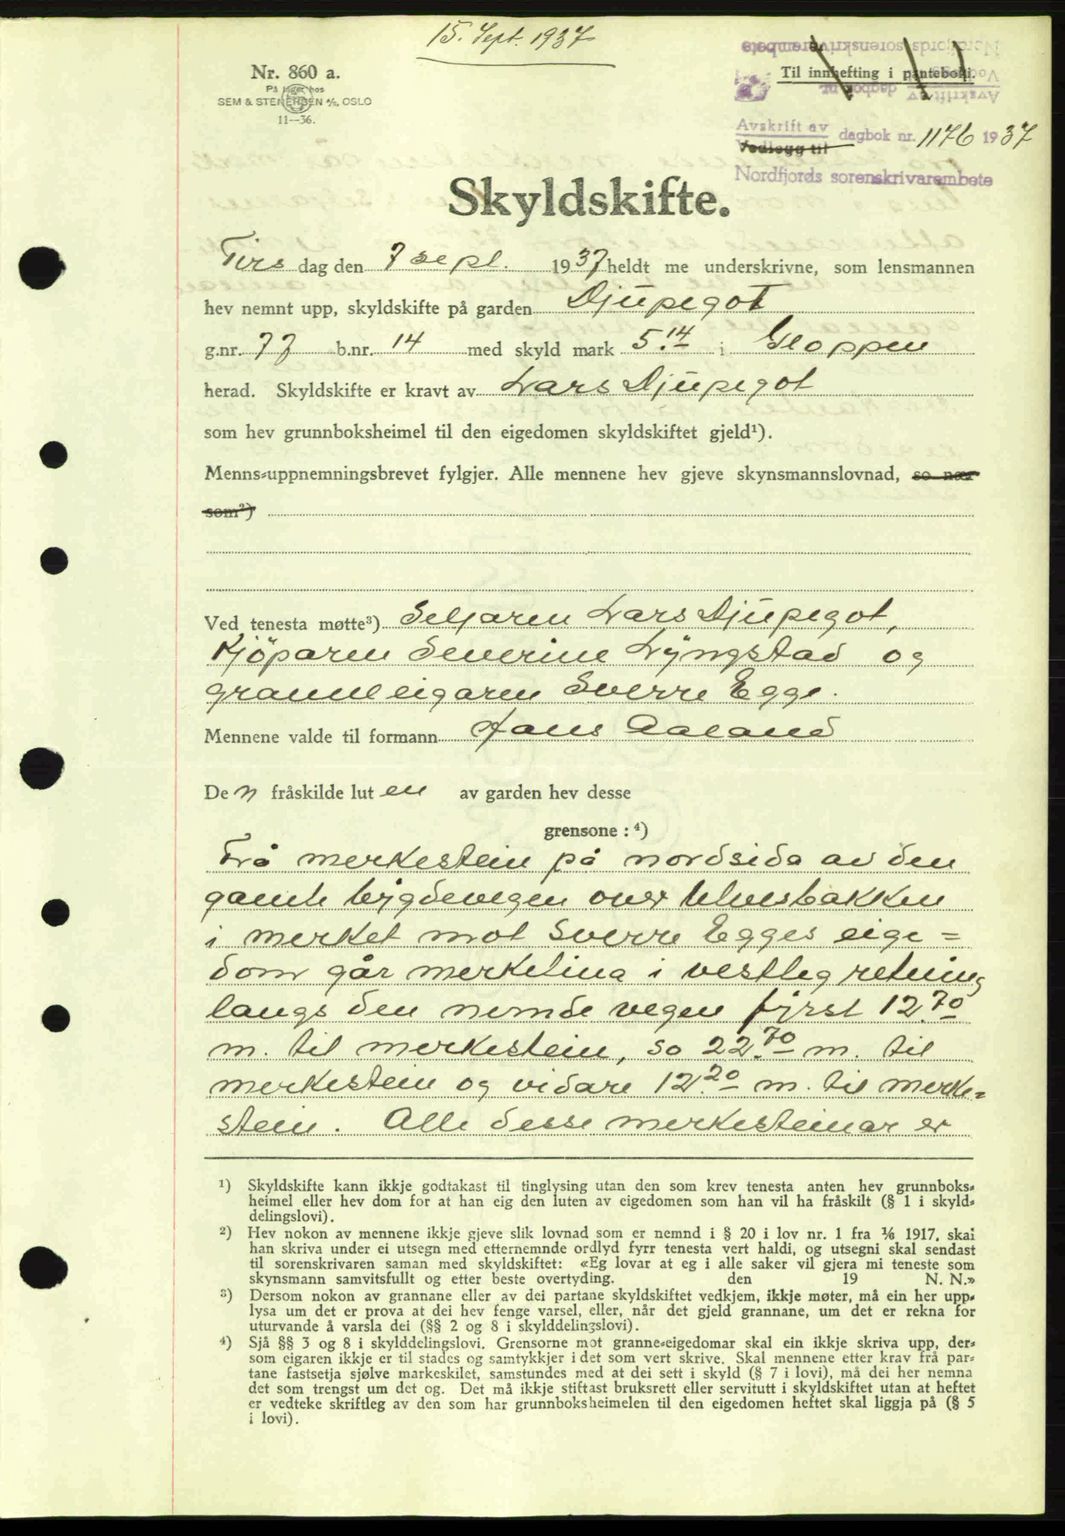 15. Sept. 1937
Nr. 860 a.
På lager hos
SEM & STENERSEN A/S, OSLO
11—36.
Til innhefting i panteboki.
Avskrift av
Vedlegg til
dagbok nr. 1176 1937
Nordfjords sorenskrivarembete
Skyldskifte.
Tirs dag den 7 sept. 1937 heldt me underskrivne, som lensmannen
hev nemnt upp, skyldskifte på garden Djupegot
g.nr. 77 b.nr. 14 med skyld mark 5.14 i Gloppen
herad. Skyldskifte er kravt av Lars Djupegot
som hev grunnboksheimel til den eigedomen skyldskiftet gjeld¹).
Menns-uppnemningsbrevet fylgjer. Alle mennene hev gjeve skynsmannslovnad, so nær
som²)
Ved tenesta møtte³) Seljaren Lars Djupegot,
Kjöparen Severine Lyngstad og
granneeigaren Sverre Egge.
Mennene valde til formann Hans Aaland
De n fråskilde lut en av garden hev desse
grensone : ⁴)
Frå merkestein på nordsida av den
gamle bygdevegen over Ulvesbakken
i merket mot Sverre Egges eige=
dom går merkelina i vestleg retning
langs den nemde vegen fyrst 12.70
m. til merkestein, so 22.70 m. til
merkestein og vidare 12.20 m. til merke=
stein. Alle desse merkesteinar er
¹) Skyldskifte kann ikkje godtakast til tinglysing utan den som krev tenesta anten hev grunnboks-
heimel eller hev dom for at han eig den luten av eigedomen som han vil ha fråskilt (§ 1 i skyld-
delingslovi).
²) Hev nokon av mennene ikkje gjeve slik lovnad som er nemnd i § 20 i lov nr. 1 fra 1/6 1917, skal
han skriva under ei utsegn med etternemnde ordlyd fyrr tenesta vert haldi, og utsegni skal sendast
til sorenskrivaren saman med skyldskiftet: «Eg lovar at eg i alle saker vil gjera mi teneste som
skynsmann samvitsfullt og etter beste overtyding. den 19 N. N.»
³) Dersom nokon av grannane eller av dei partane skyldskiftet vedkjem, ikkje møter, må ein her upp-
lysa um det er prova at dei hev fenge varsel, eller, når det gjeld grannane, um det er rekna for
uturvande å varsla dei (§§ 2 og 8 i skylddelingslovi).
⁴) Sjå §§ 3 og 8 i skylddelingslovi. Grensorne mot granne-eigedomar skal ein ikkje skriva upp, der-
som eigaren ikkje er til stades og samtykkjer i det som vert skrive. Skal mennene etter krav frå par-
tane fastsetja sjølve markeskilet, samstundes med at dei sett i skyld (§ 7 i lovi), må dei her nemna
det som trengst um det og. Det må ikkje stiftast bruksrett eller servitutt i skyldskiftet utan at heftet
er vedteke skriftleg av den som har grunnboksheimelen til den eigedomen heftet skal liggja på (§ 5
i lovi).